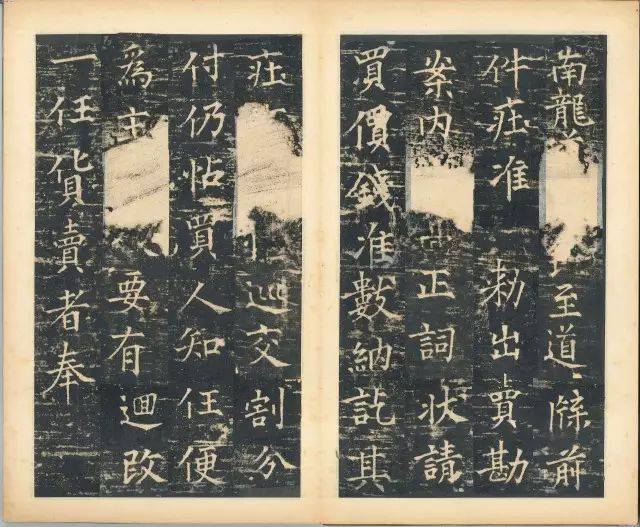 南龍至道牒前
件庄准勅出賣勘
案内正詞狀請
買價錢准數納訖其
庄巡交割分
付仍帖買人知任便
爲主要有迴改
一任貨賣者奉